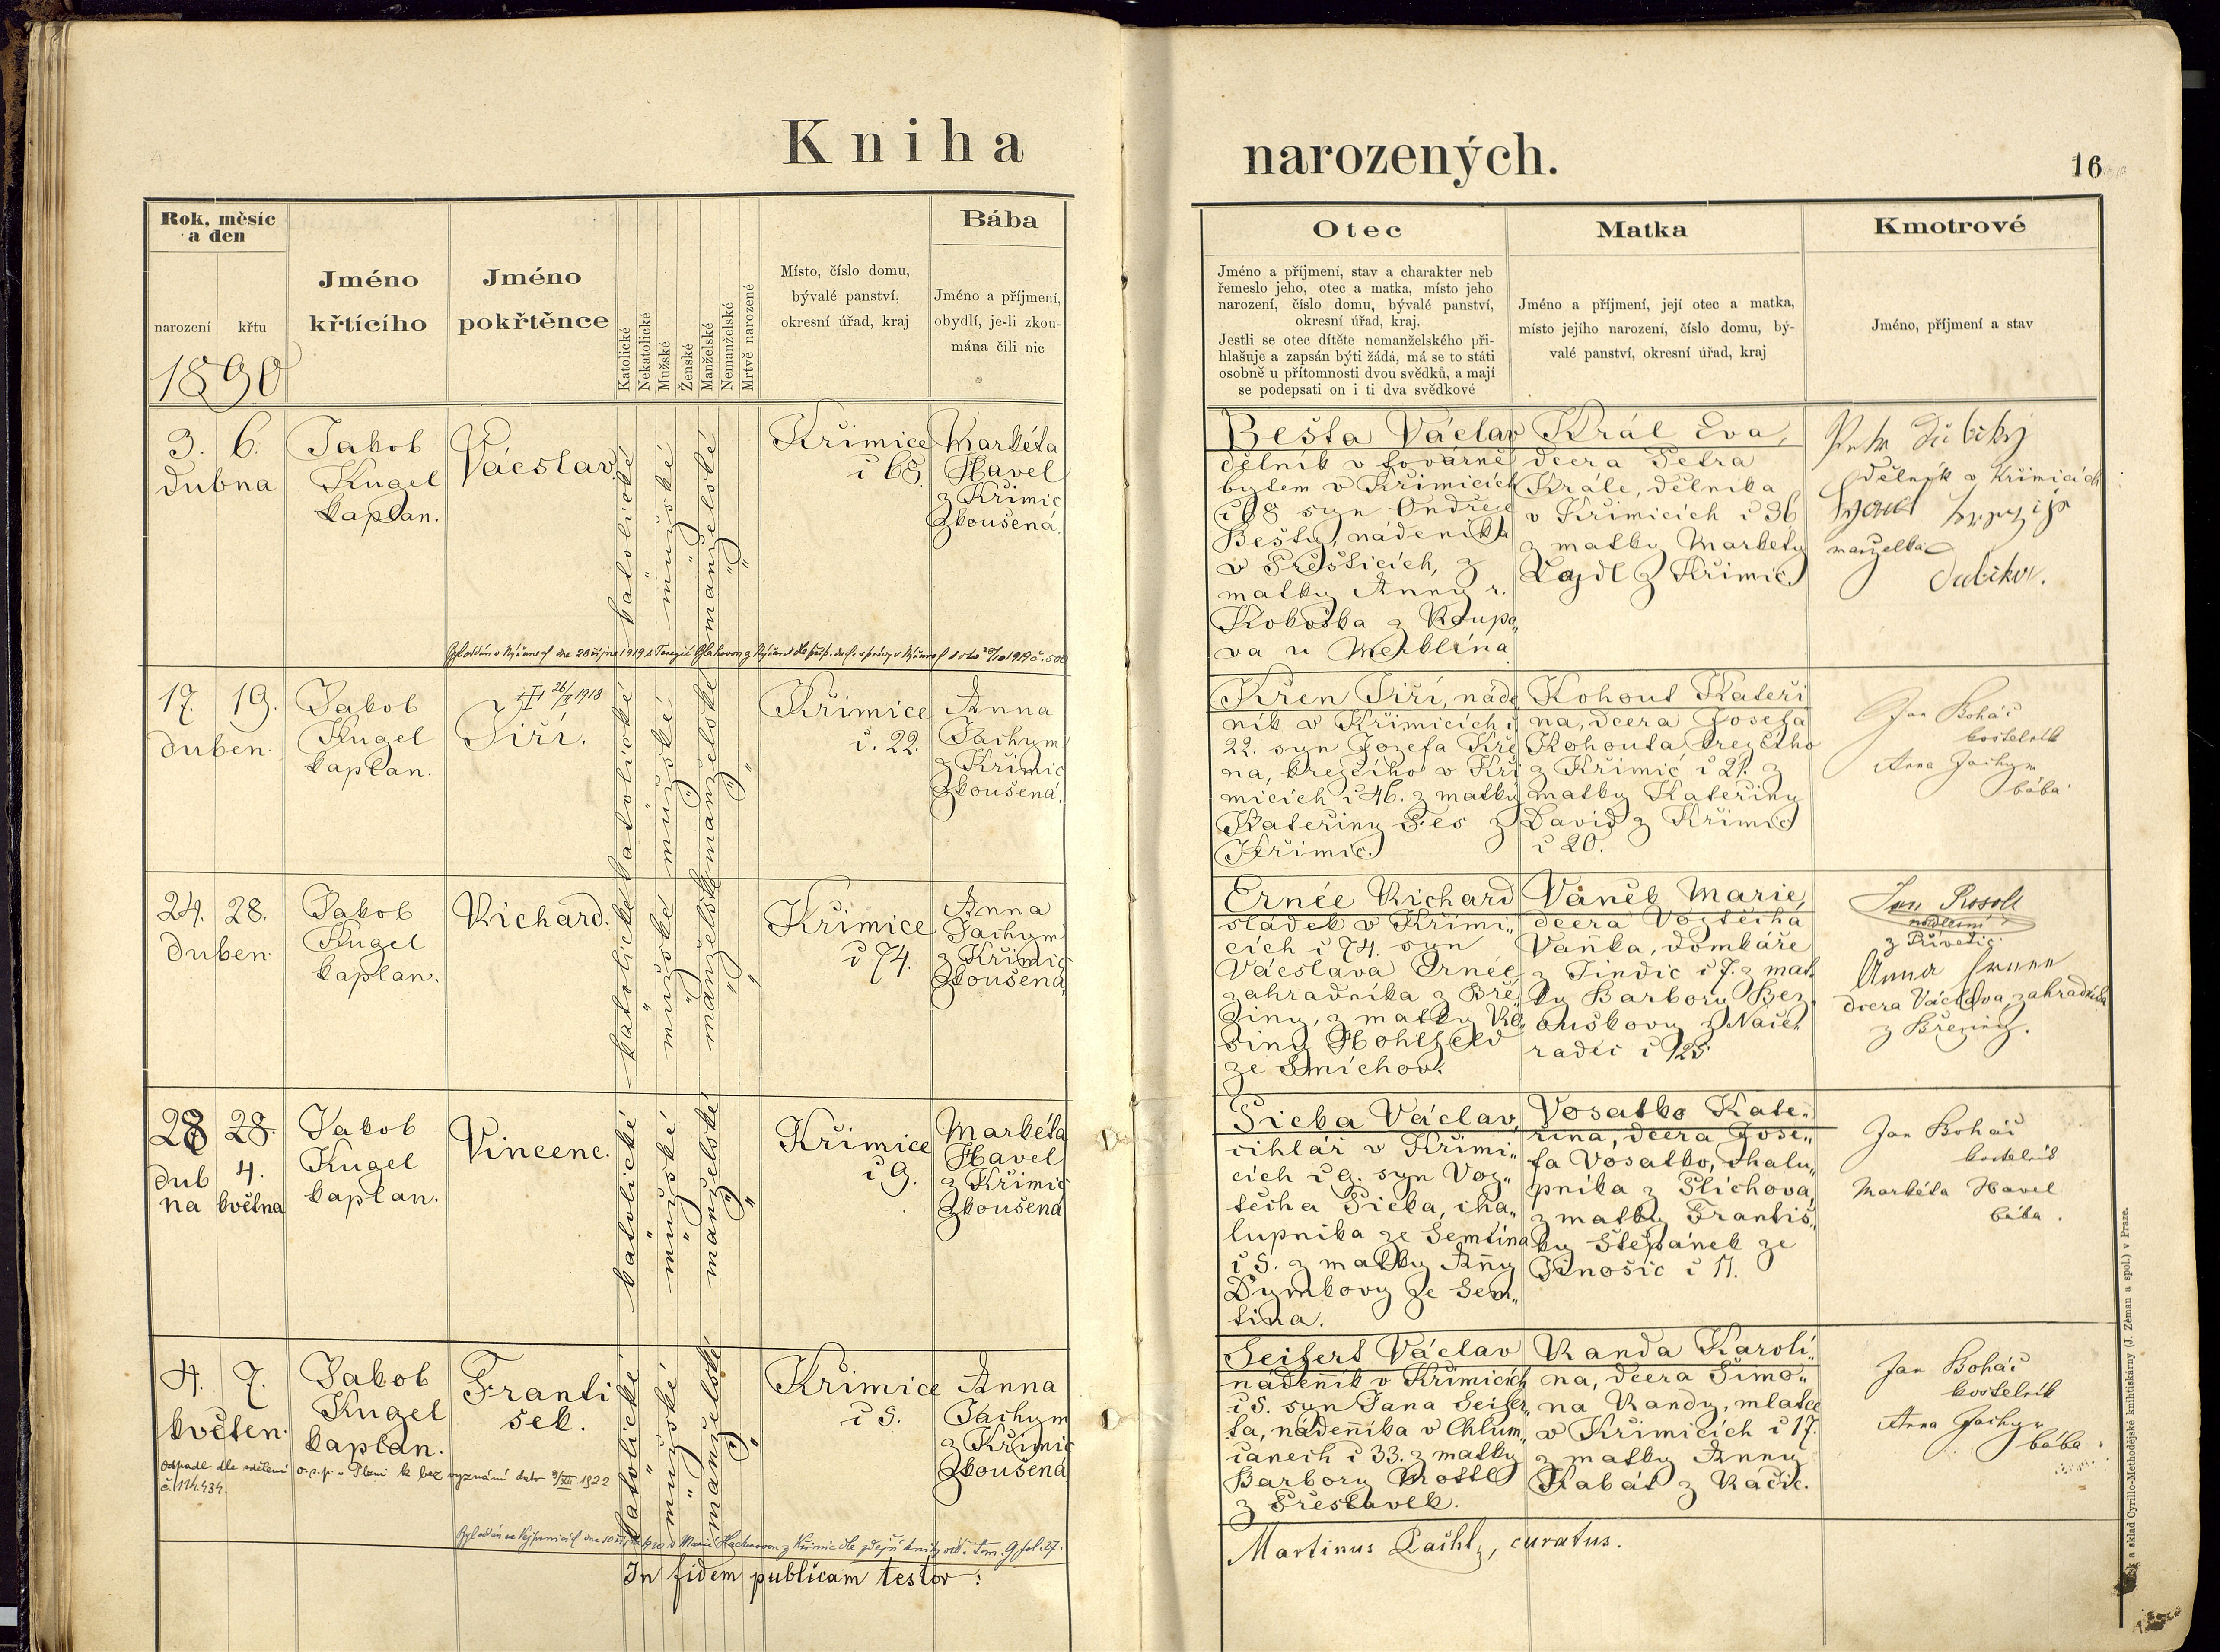 Kniha
narozených.
16
Rok, měsíc
a den
narození
křtu
Jméno
křtícího
Jméno
pokřtěnce
Katolické
Nekatolické
Mužské
Ženské
Manželské
Nemanželské
Mrtvě narozené
Místo, číslo domu,
bývalé panství,
okresní úřad, kraj
Bába
Jméno a příjmení,
obydlí, je-li zkou-
mána čili nic
Otec
Jméno a příjmení, stav a charakter neb
řemeslo jeho, otec a matka, místo jeho
narození, číslo domu, bývalé panství,
okresní úřad, kraj.
Jestli se otec dítěte nemanželského při-
hlašuje a zapsán býti žádá, má se to státi
osobně u přítomnosti dvou svědků, a mají
se podepsati on i ti dva svědkové
Matka
Jméno a příjmení, její otec a matka,
místo jejího narození, číslo domu, bý-
valé panství, okresní úřad, kraj
Kmotrové
Jméno, příjmení a stav
1890
3. 6.
dubna
Jakob
Kugel
kaplan.
Vácslav
katolické
mužské
manželské
Křimice
č 68.
Markéta
Havel
z Křimic
Zkoušená.
Bešta Václav
dělník v továrně
bytem v Křimicích
č 68 syn Ondřeje
Bešty, nádeníka
v Přešticích, z
matky Anny r.
Kokoška z Roupo„
va u Merklína
Král Eva,
dcera Petra
Krále, dělníka
v Křimicích č 36
z matky Markéty
Lajdl z Křimic.
dělník v Křimicích
manželka
17. 19.
duben.
Jakob
Kugel
kaplan.
1918
Jiří.
katolické
mužské
manželské
Křimice
č. 22.
Anna
Jachym
z Křimic
Zkoušená.
Křen Jiří, náde
ník v Křimicích č
22. syn Jozefa Kře
na, krejčího v Kři
micích č 46. z matky
Kateřiny Pes z
Křimic.
Kohout Kateři
na, dcera Josefa
Kohouta krejčího
z Křimic č 21. z
matky Kateřiny
David z Křimic
č 20.
Jan Boháč
kostelník
Anna Jachym
bába
24. 28.
duben.
Jakob
Kugel
kaplan.
Richard.
katolické
mužské
manželské
Křimice
č 74.
Anna
Jachym
z Křimic
Zkoušená
Ernée Richard
sládek v Křimi„
cích č 74. syn
Vácslava Ernée
zahradníka z Bře
ziny, z matky Ro„
siny Hohlfeld
ze Smíchov.
Vaněk Marie,
dcera Vojtěcha
Vaňka, domkáře
z Jindic č 7. z mat
ky Barbory Bez
ouškovy z Nače
radce č 125
Jan Rosol
z Přivětic
Anna
dcera Václava, zahradníka
z Březiny.
28 28.
dub 4.
na května
Jakob
Kugel
kaplan.
Vincenc.
katolické
mužské
manželské
Křimice
č 9.
Markéta
Havel
z Křimic
Zkoušená
Sicka Václav,
cihlář v Křimi„
cích č 9. syn Voj„
těcha Sicka, cha„
lupníka ze Semtína
č 5. z matky Anny
Dymkovy ze Sem„
tína.
Vosatko Kate„
řina, dcera Jose„
fa Vosatko, chalu„
pníka z Slichova,
z matky Františ„
ky Štěpánek ze
Jinošic č 11.
Jan Boháč
kostelník
Markéta Havel
bába.
4. 7.
květen.
Jakob
Kugel
kaplan.
Franti
šek.
katolické
mužské
manželské
Křimice
č 5.
Anna
Jachym
z Křimic
Zkoušená
Seifert Václav
nádeník v Křimicích
č 5. syn Jana Seifer„
ta, nádeníka v Chlum„
čanech č 33. z matky
Barbory Trottl
z Přestavlk.
Randa Karolí„
na, dcera Šimo„
na Randy, mlatce
v Křimicích č 17.
z matky Anny
Kabát z Račic.
Jan Boháč
kostelník
Anna Jachym
bába
Odpadl dle sdělení o. s. p. v Plzni k bez vyznání dato 9/XII. 1922
č. 114.434.
In fidem publicam testor:
Martinus Pachl, curatus.
a sklad Cyrillo-Methodějské knihtiskárny (J. Zeman a spol.) v Praze.